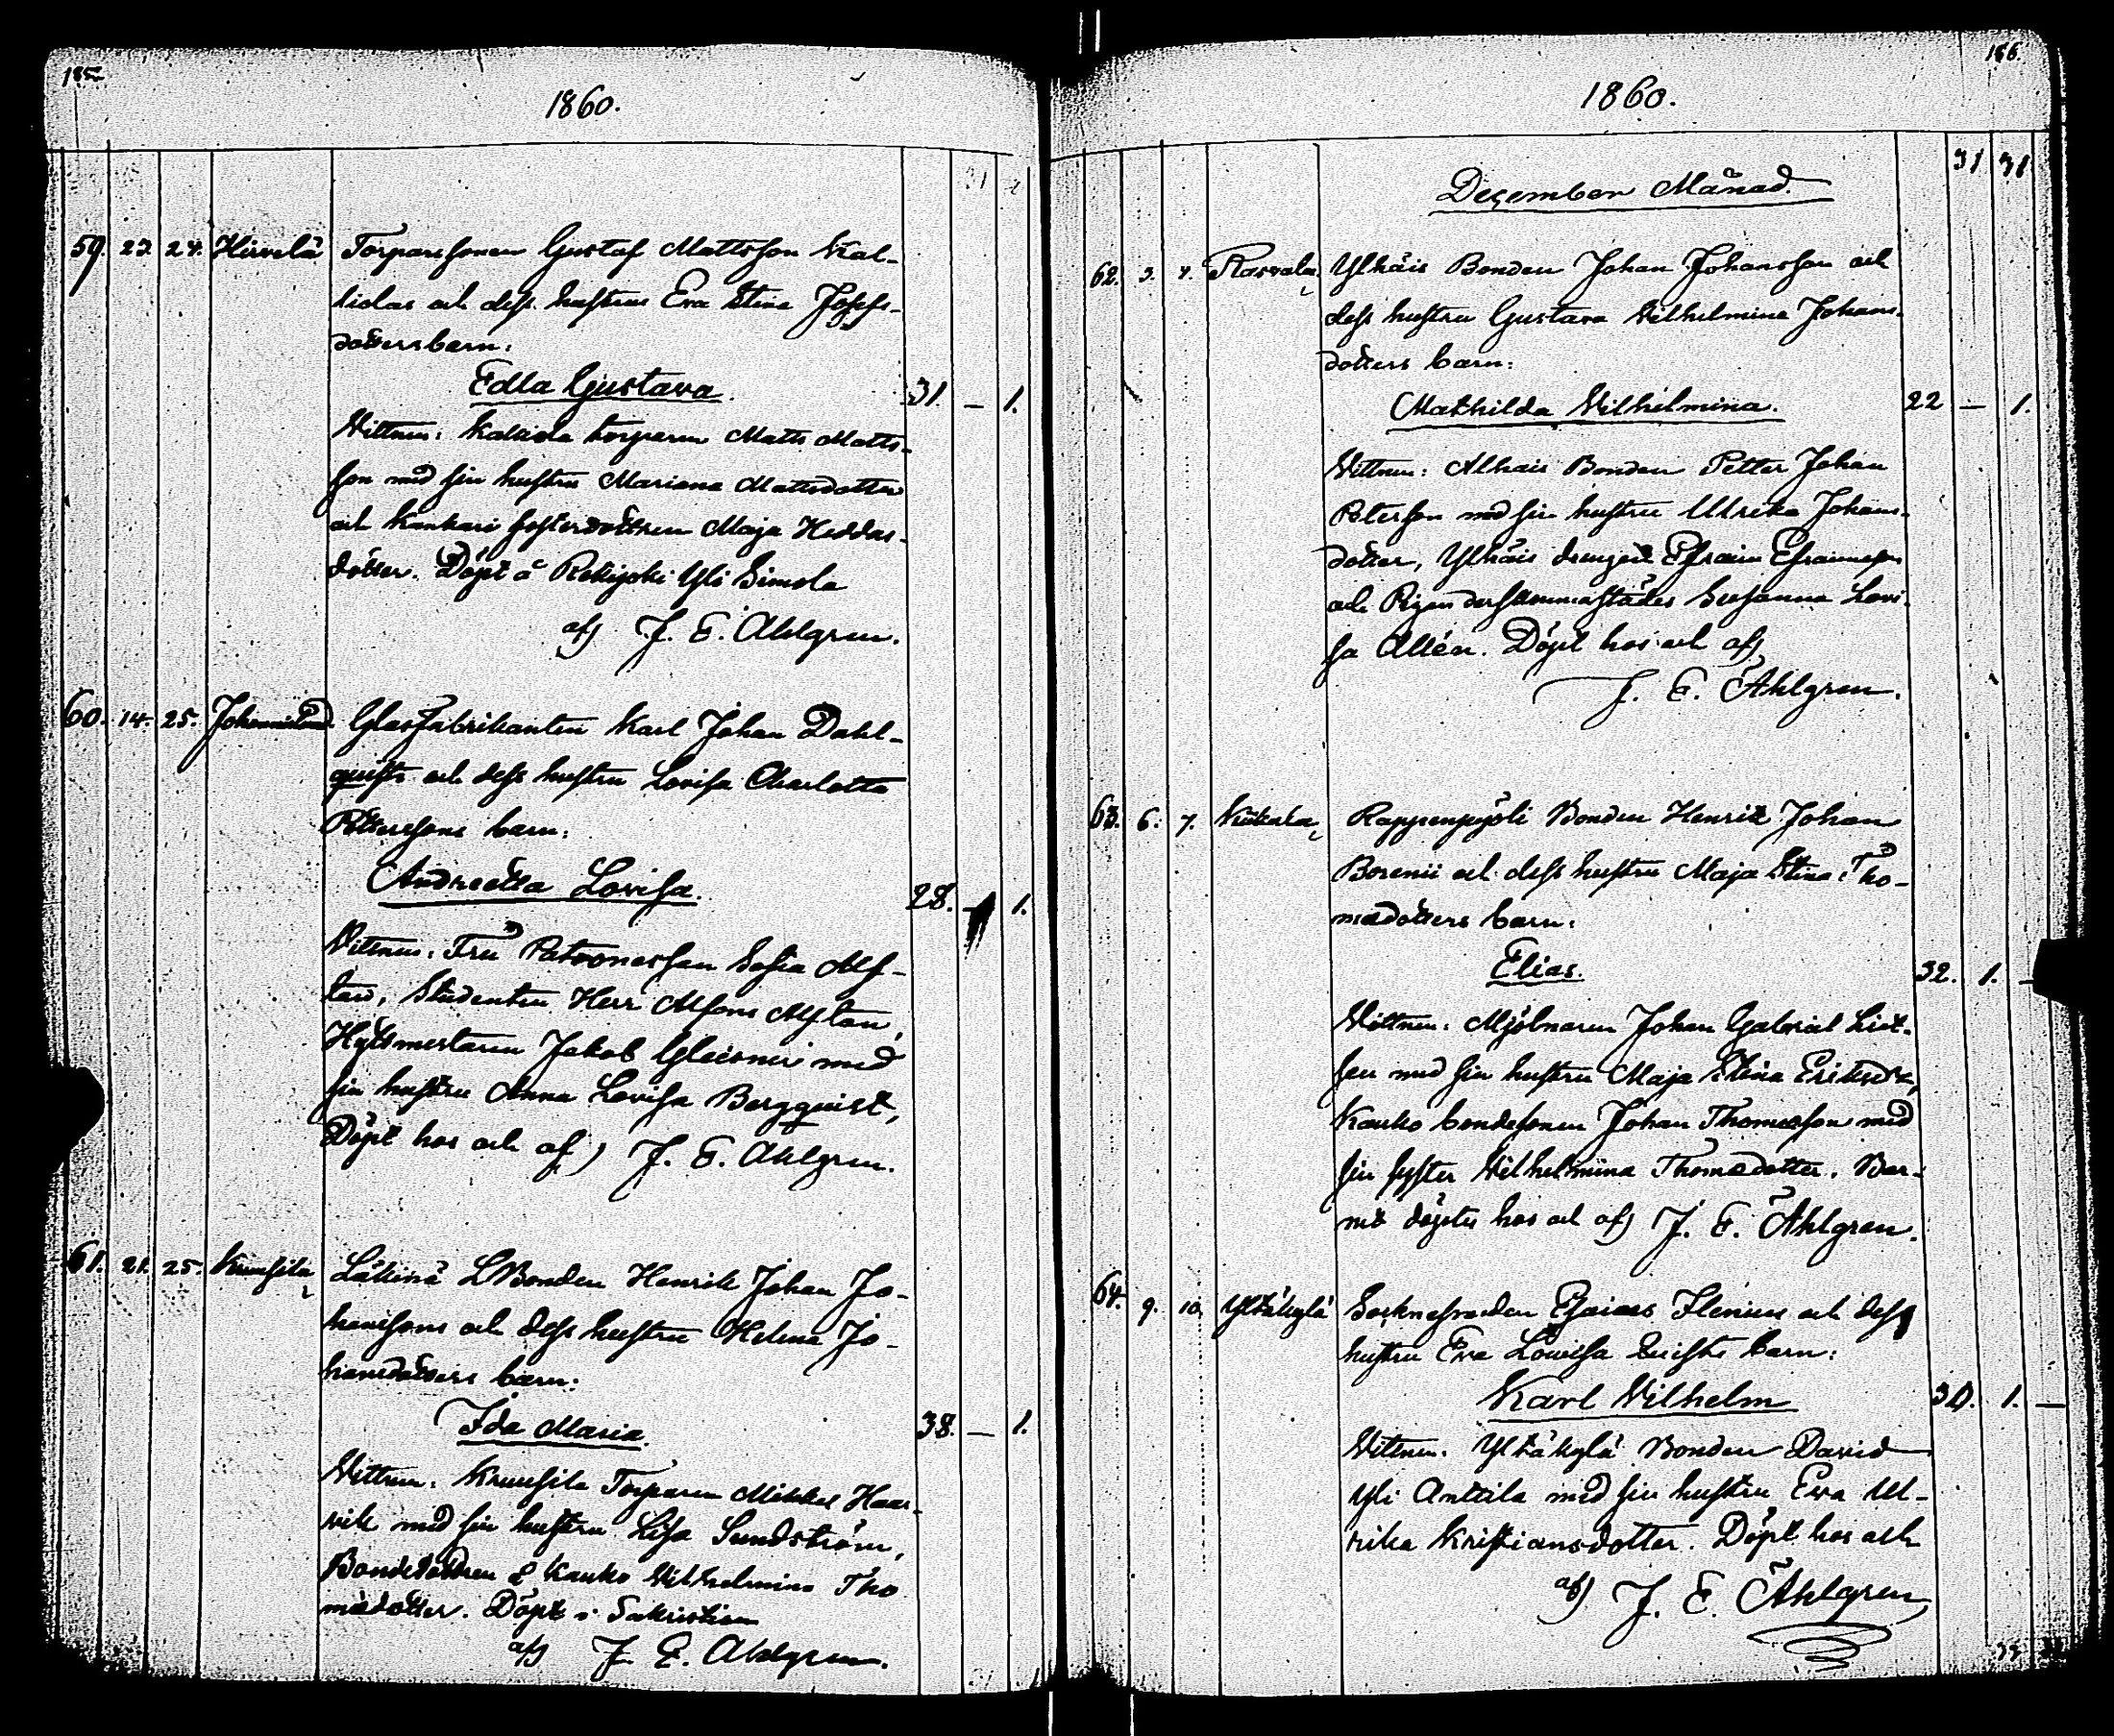 185.
1860.
59. 23. 24. Hirvelä Torparesonen Gustaf Mattsson Kal-
liolas och dess hustrus Eva Stina Josefs-
dotters barn:
Edla Gustava. 31. — 1.
Vittnen: Kalliola torparen Matts Matts-
son med sin hustru Mariana Mattsdotter
och Kankare fosterdottren Maja Heddas-
dotter. Döpt å Rekijoki Yli Simola
af J. E. Ahlgren.
60. 14. 25. Johannislund. Glasfabrikanten Karl Johan Dahl-
quists och dess hustru Lovisa Charlotta
Pettersons barn:
Andreetta Lovisa. 28. — 1.
Vittnen: Fru Patronessan Sofia Alf-
tan, Studenten Herr Alfons Alftan,
Hyttmestaren Jakob Gleisner med
sin hustru Anna Lovisa Bergquist,
Döpt hos och af J. E. Ahlgren.
61. 21. 25. Kruusila Läkinä LBonden Henrik Johan Jo-
hanssons och dess hustru Helena Jo-
hansdotters barn:
Ida Maria. 38. — 1.
Vittnen: Kruusila Torparen Mikkel Haar-
vik med sin hustru Lisa Sundström,
Bondedottren å Kauko Vilhelmina Tho
mædotter. Döpt i Sakristian
af J. E. Ahlgren.
186.
1860.
31 31
December Månad.
62. 3. 4. Rasvala Ylhäis Bonden Johan Johansson och
dess hustru Gustava Vilhelmina Johans-
dotters barn:
Mathilda Vilhelmina. 22 — 1.
Vittnen: Alhais Bonden Petter Johan
Peterson med sin hustru Ulrika Johans-
dotter, Ylhäis drengen Efraim Efraimsson
och Pigan dersammastädes Susanna Lovi-
sa Allén. Döpt hos och af
J. E. Ahlgren.
63. 6. 7. Kiikala Rappenpyöli Bonden Henrik Johan
Borenii och dess hustru Maja Stina Tho-
mædotters barn:
Elias. 32. 1. —
Vittnen: Mjölnaren Johan Gabriel
med sin hustru Maja Stina Eriksdr,
Kauko bondesonen Johan Thomasson med
sin syster Vilhelmina Thomædotter. Bar-
net döptes hos och af J. E. Ahlgren.
64. 9. 10. Yltäkylä Socknesmeden Esaias Flenius och dess
hustru Eva Lowisa Quists barn:
Karl Vilhelm 30. 1. —
Vittnen: Yltäkylä Bonden David
Yli Anttila med sin hustru Eva Ul-
rika Kristiansdotter. Döpt hos och
af J. E. Ahlgren